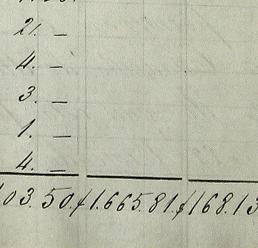 21. —
4. —
3. —
1. —
4. —
103. 50 ƒ1.665.81. ƒ168.13